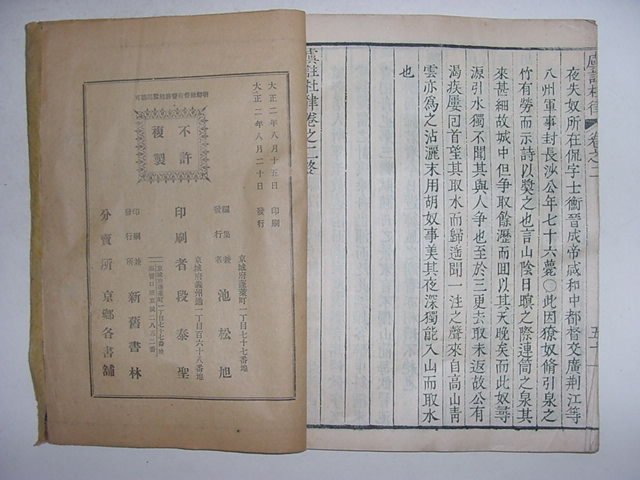 夜失奴所在侃字士衡晉成帝咸和中都督交廣荆江等
八州軍事封長沙公年七十六薨〇此因獠奴脩引泉之
竹有勞而示詩以奬之也言山陰日暝之際連筒之泉其
來甚細故城中但爭取餘瀝而回以其天晚矣而此奴尋
源引水獨不聞其與人争也至於三更去取未返故公有
渴疾屢囘首望其取水而歸遥聞一注之聲來自高山青
雲亦爲之沾灑末用胡奴事美其夜深獨能入山而取水
也
虞註杜律卷之二終
大正二年八月十五日 印刷
大正二年八月二十日 發行
不許
複製
京城府蓬萊町一丁目七十七番地
編集兼
發行者 池松旭
京城府義州通一丁目百六十八番地
印刷者 段泰聖
印刷兼
發行所 新舊書林
分賣所 京鄉各書舖